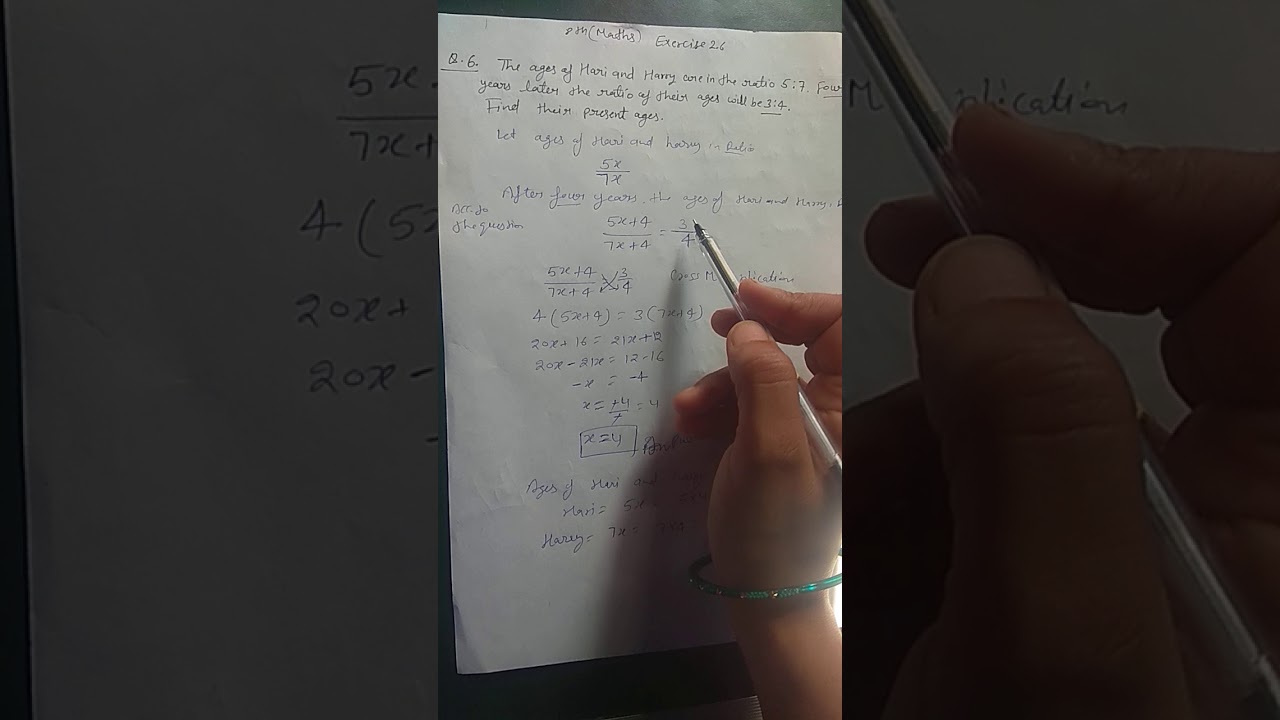 8th (Maths) Exercise 2.6
Q.6. The ages of Hari and Harry are in the ratio 5:7. Four
years later the ratio of their ages will be 3:4.
Find their present ages.
Let ages of Hari and harry in Ratio
5x/7x
After four years, the ages of Hari and Harry
Acc. to
the question
5x+4/7x+4 = 3/4
5x+4/7x+4 3/4 Cross
4(5x+4) = 3(7x+4)
20x+16 = 21x+12
20x-21x = 12-16
-x = -4
x = = 4
x=4
Ages of Hari and
Hari = 5x
Harry = 7x =
5x
7x+
4(5
20x+
20x-
plication